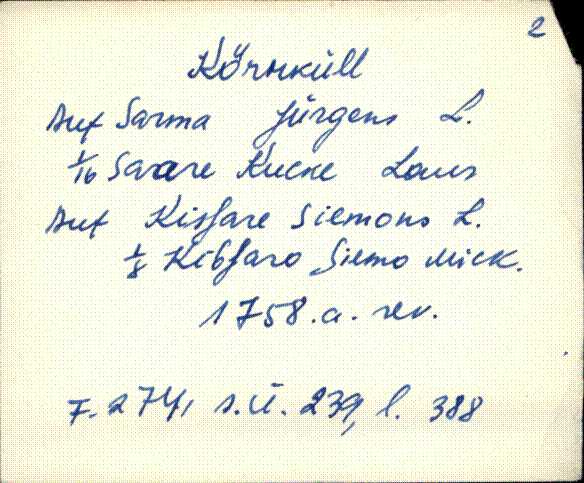 2
Körnküll
Auf Sarma Jürgens L.
1/16 Saare Kucke Laus
Auf Kisfare Siemons L.
1/8 Kibfaro Siemo Mick.
1758.a. rev.
F. 274, s.ü. 239, l. 388